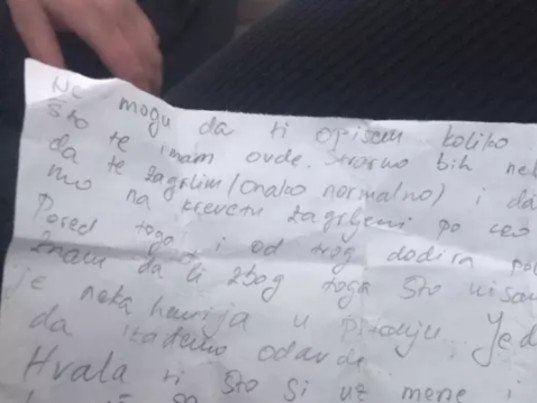 Ne mogu da ti opišem koliko
što te imam ovde. Strašno bih
da te zagrlim (onako normalno) i da
mo na krevetu zagrljeni po ceo
Pored toga i od tvog dodira
Znam da li zbog toga što nisam
je neka hemija u pitanju. Jed
da izađemo odavde
Hvala ti što si uz mene i